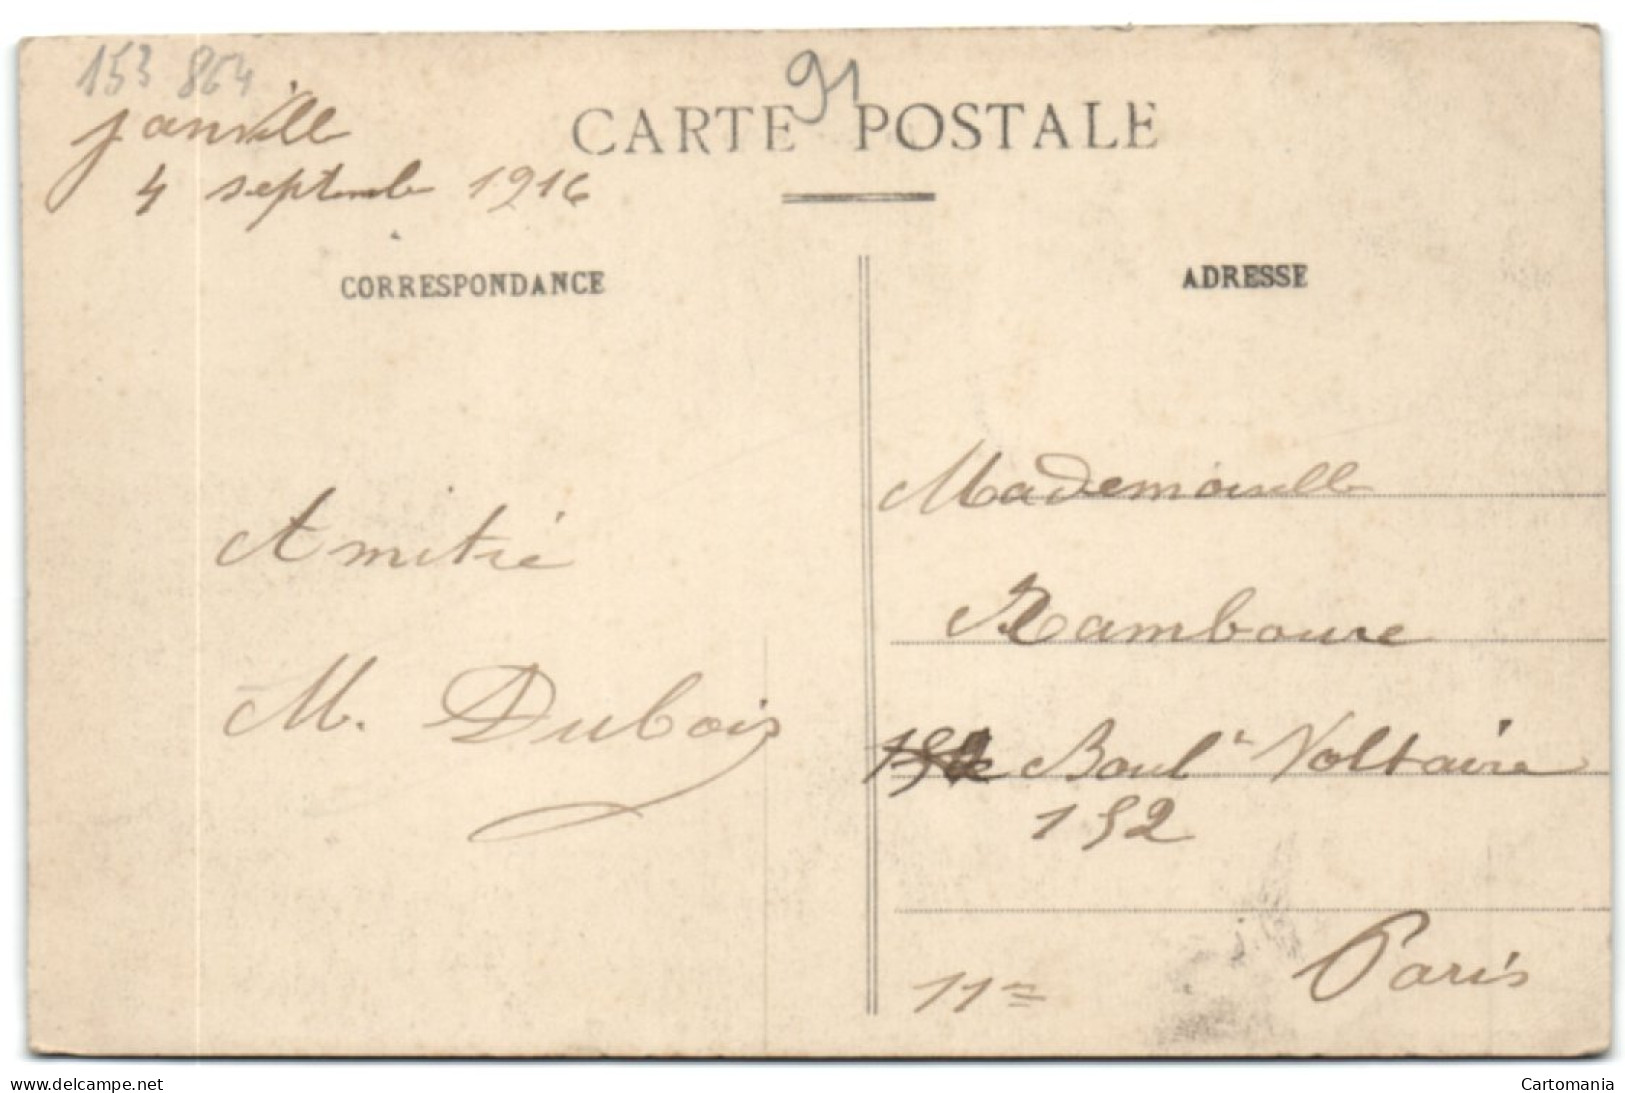 153 864
91
janville
4 septembre 1916
CARTE POSTALE
CORRESPONDANCE
ADRESSE
Amitié
M. Dubois
Mademoiselle
Ramboure
Boul^t Voltaire
152
Paris
11me
delcampe.net
Cartomania